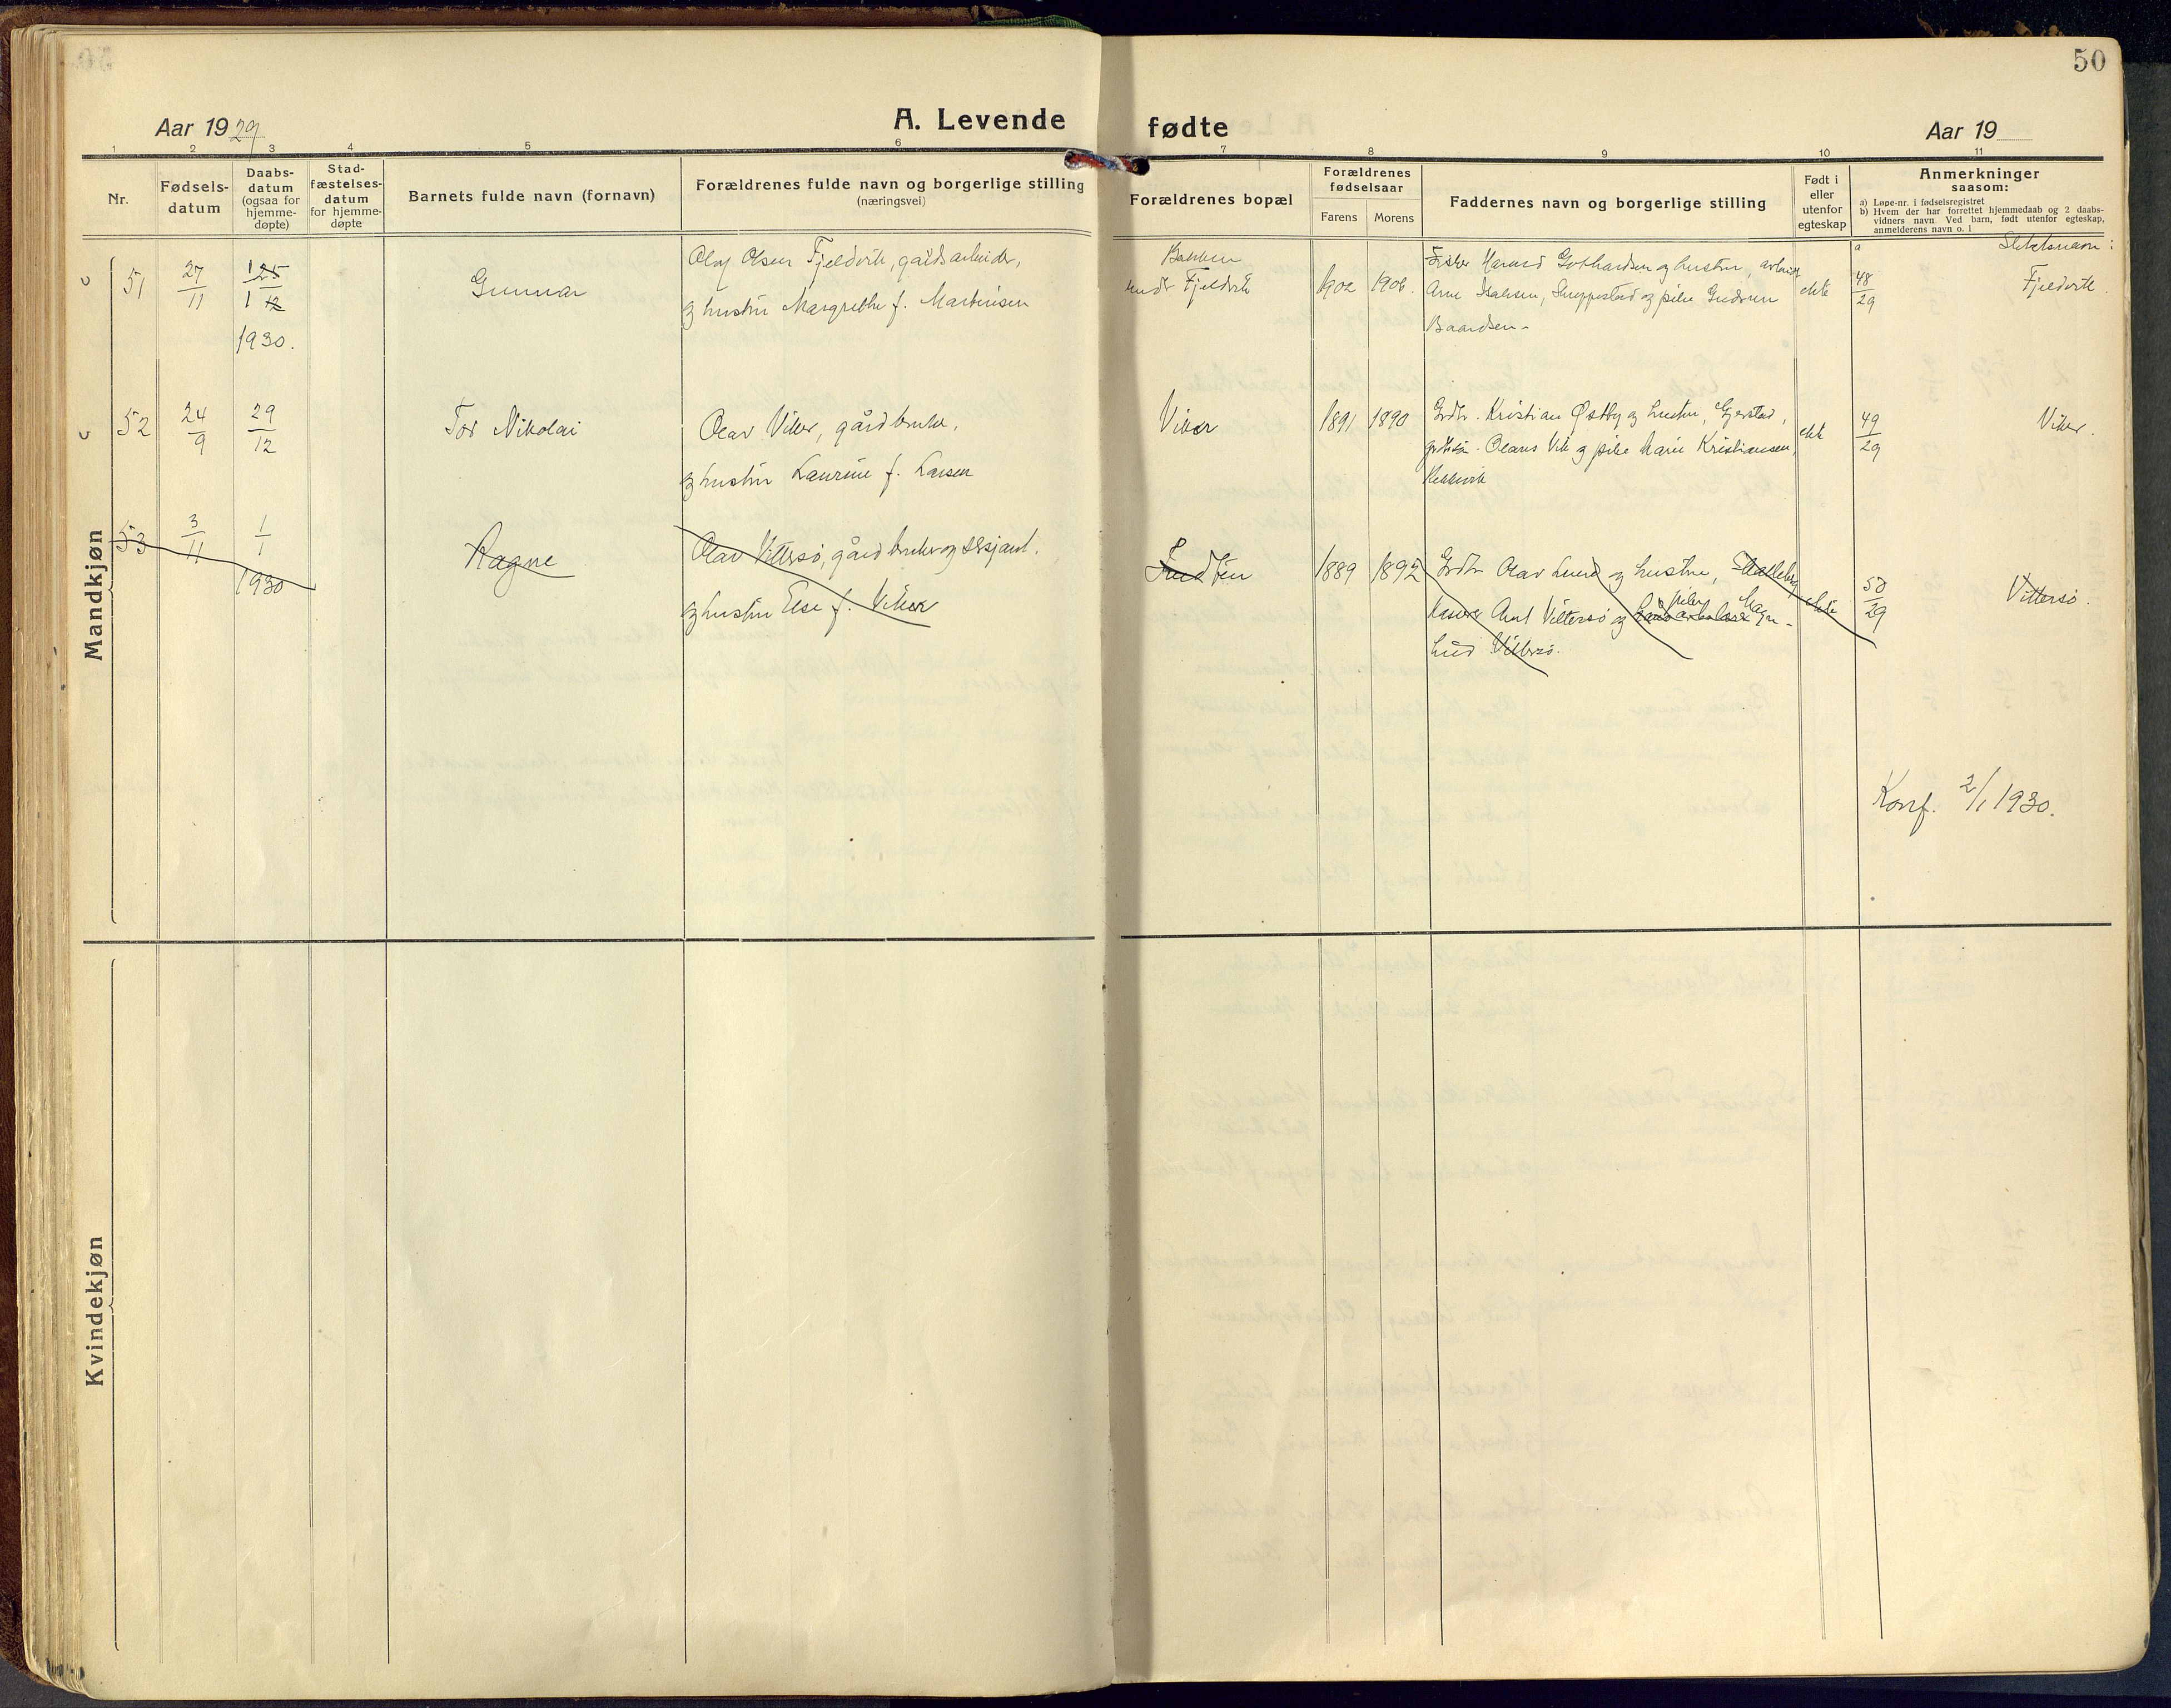 50
Aar 1929
A. Levende fødte
Aar 19
1 2 3 4 5 6 7 8 9 10 11
Nr.
Fødselsdatum
Daabsdatum (ogsaa for hjemmedøpte)
Stadfæstelsesdatum for hjemmedøpte
Barnets fulde navn (fornavn)
Forældrenes fulde navn og borgerlige stilling
(næringsvei)
Forældrenes bopæl
Forældrenes fødselsaar
Farens Morens
Faddernes navn og borgerlige stilling
Født i eller utenfor egteskap
Anmerkninger
saasom:
a) Løpe-nr. i fødselsregistret
b) Hvem der har forrettet hjemmedaab og 2 daabs-
vidners navn. Ved barn, født utenfor egteskap,
anmelderens navn o. l
Mandkjøn
51 27/11 1/1 1930.
Gunnar
Olaf Olsen Fjeldvik, gårdsarbeider,
og hustru Margrethe f. Martinsen
Bakken
under Fjeldvik
1902 1906.
Fisker Harald Gothardsen og hustru, arbeider
Arne Isaksen, og pike Gudrun
Baardsen
ekte
a
48/29
Slektsnavn:
Fjeldvik.
52 24/9 29/12
Tor Nikolai
Olav Viker, gårdbruker,
og hustru Laurine f. Larsen
Viker
1891 1890
Grdbr. Kristian Østby og hustru, Gjerstad,
Olaus Vik og pike Marie Kristiansen,
ekte
49/29
Viker.
53 3/11 1/1
1930
Ragne
Olav Vittersø, gårdbruker og sersjant.
og hustru Else f. Viker
1889 1892
Grdbr. Olav Lund og hustru,
Vittersø og pike Magn-
hild Vittersø.
ekte
50/29
Vittersø.
Konf. 2/1 1930.
Kvindekjøn